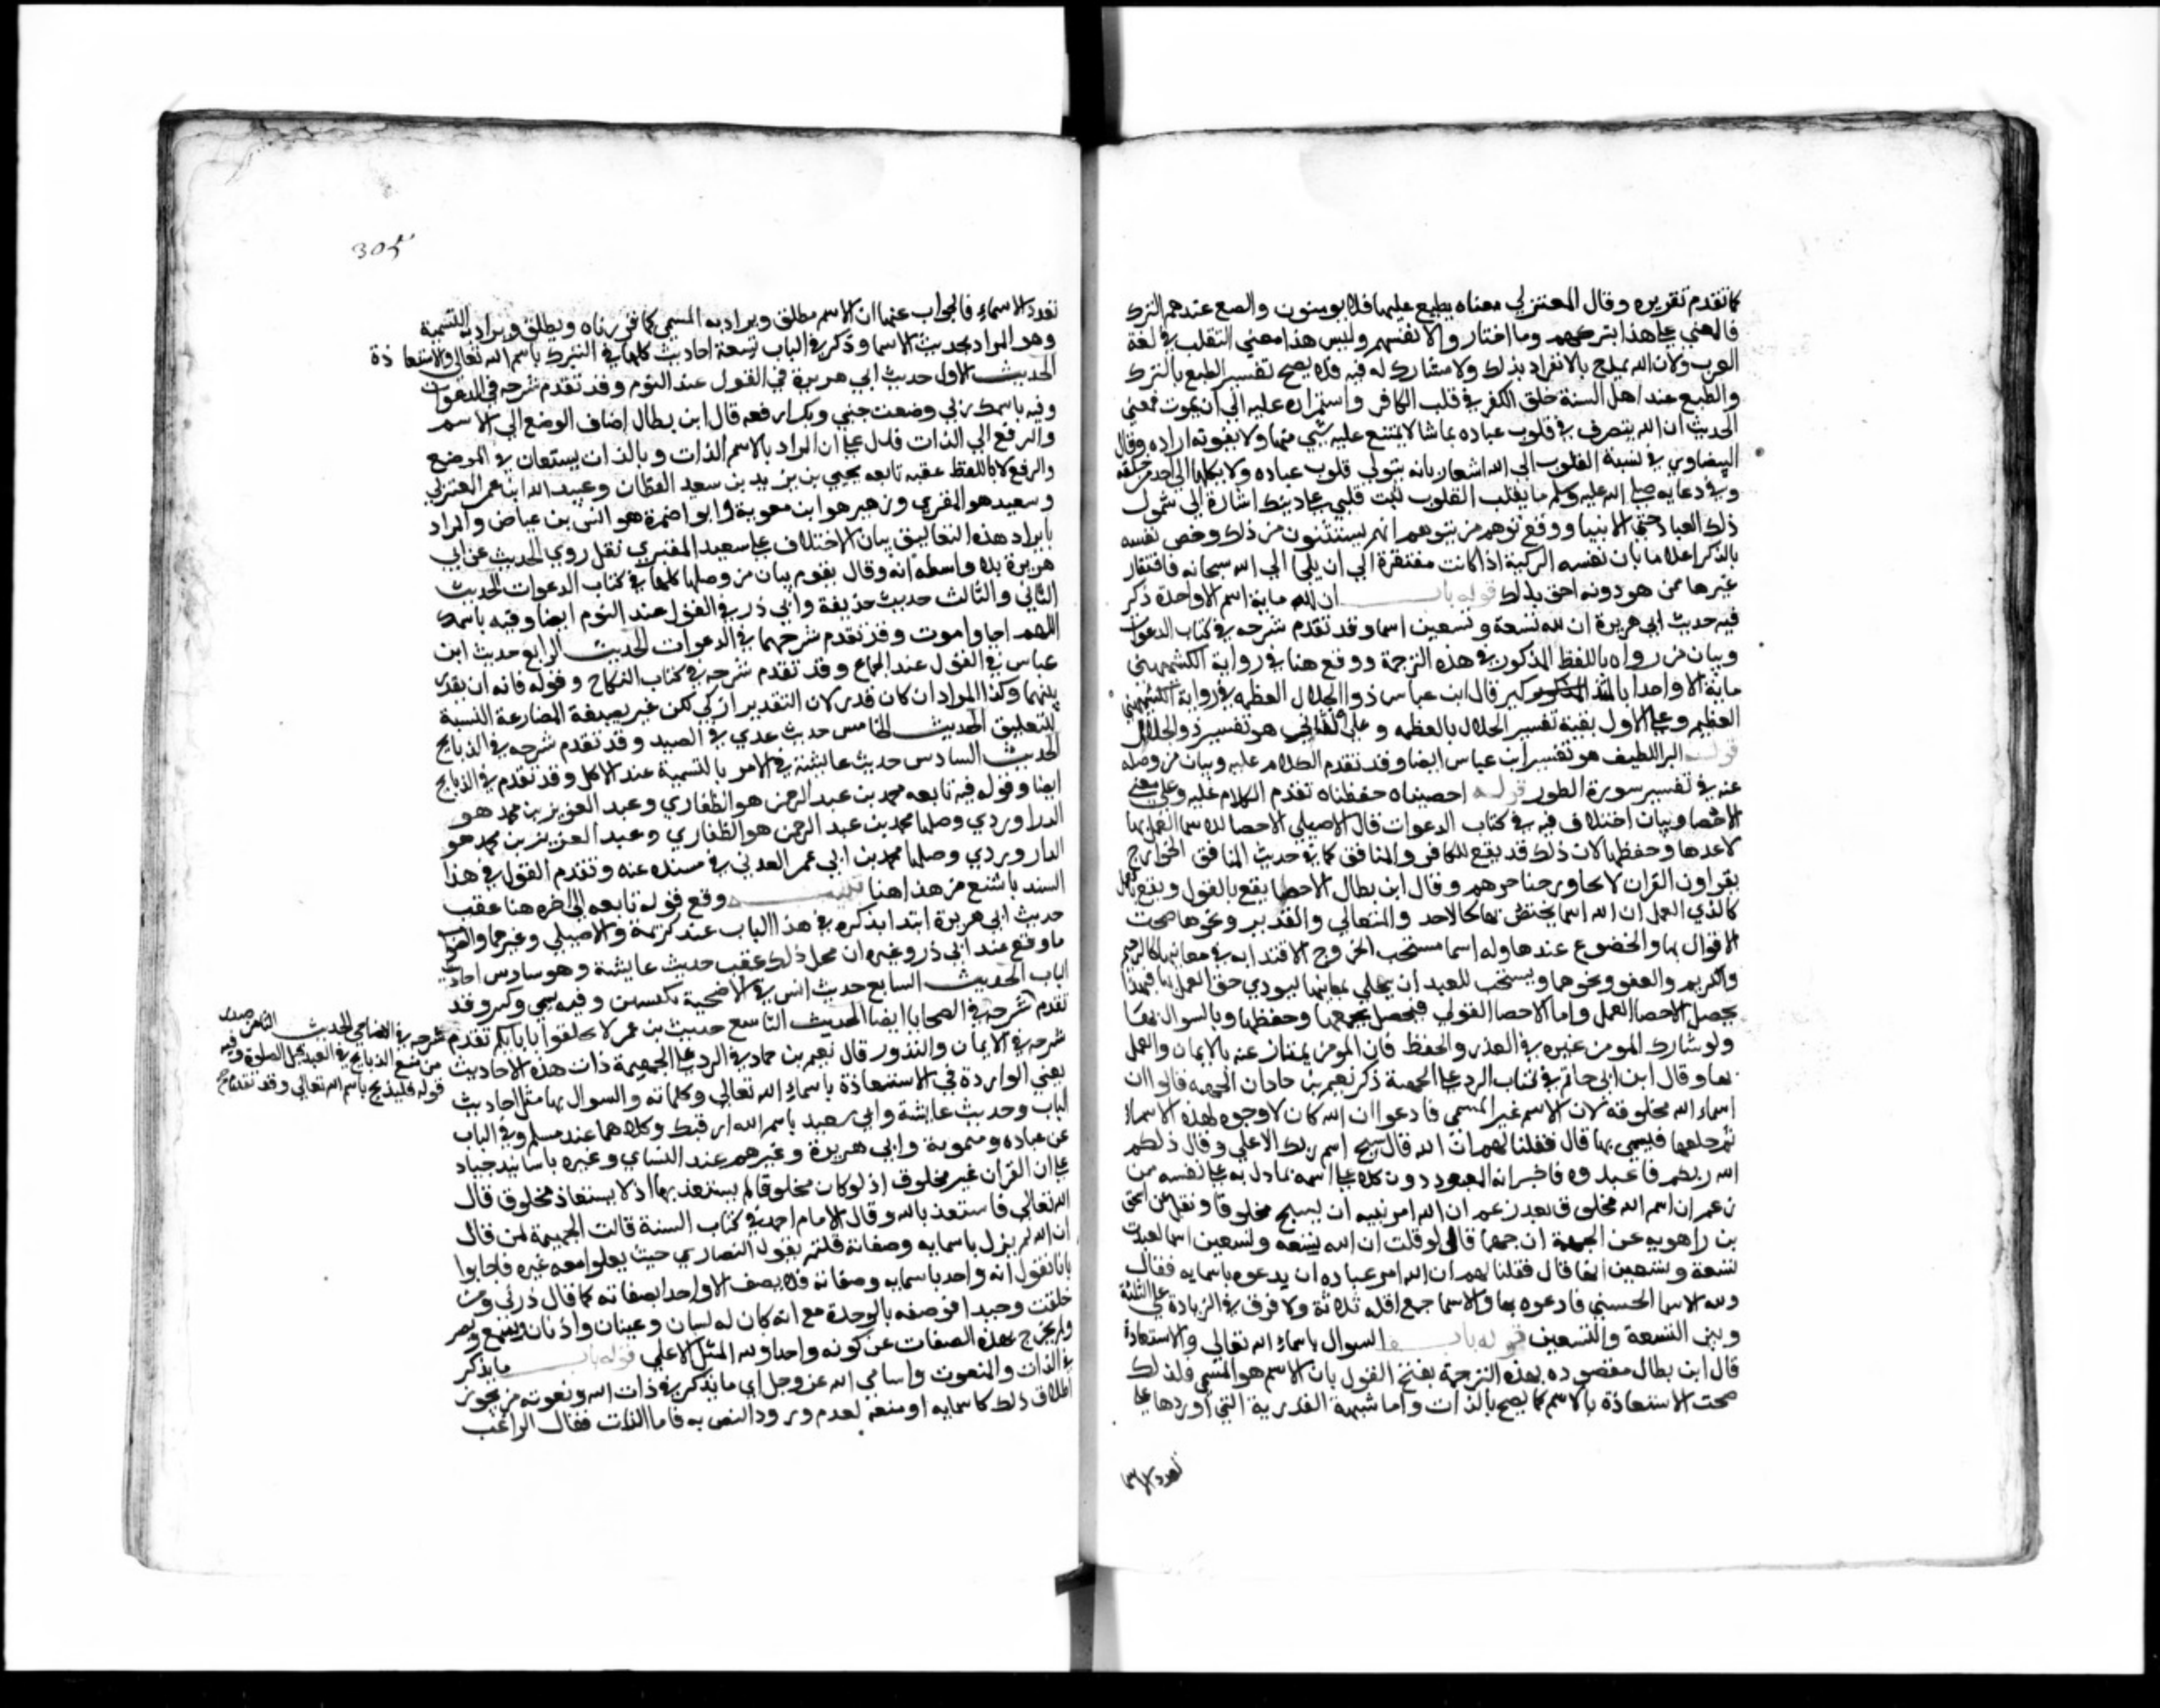 كما تقدم تقريره وقال المعتزلي معناه يطبع عليها فلا يومنون والطبع عندهم الترك
فالمعني علي هذا بتركهم وما اختاروا لانفسهم وليس هذا معني التقلب في لغة
العرب ولان الله تمدح بالانفراد بذلك ولا مشارك له فيه فلا يصح تفسير الطبع بالترك
والطبع عند اهل السنة خلق الكفر في قلب الكافر واستمراره عليه الي ان يموت فمعني
الحديث ان الله يتصرف في قلوب عباده بما شا لا يمتنع عليه شي منها ولا يفوته اراده وقال
البيضاوي في نسبة القلوب الي الله اشعار بانه يتولي قلوب عباده ولا يكلها الي احد من خلقه
وفي دعايه صلي الله عليه وسلم يا مقلب القلوب ثبت قلبي علي دينك اشارة الي شمول
ذلك العباد حتي الانبيا ووقع توهم من يتوهم انهم يستثنون من ذلك وخص نفسه
بالذكر اعلاما بان نفسه الزكية اذا كانت مفتقرة الي ان يلجا الي الله سبحانه فافتقار
غيرها ممن هو دونه احق بذلك قوله باب ان لله ماية اسم الا واحدة ذكر
فيه حديث ابي هريرة ان لله تسعة وتسعين اسما وقد تقدم شرحه في كتاب الدعوات
وبيان من رواه باللفظ المذكور في هذه الترجمة ووقع هنا في رواية الكشميهني
ماية الا واحدا قال ابن عباس ذو الجلال العظمه في رواية الكشميهني
العظيم وعلي الاول بقية تفسير الجلال بالعظمه وعلي الثاني هو تفسير ذو الجلال
قوله البر اللطيف هو تفسير ابن عباس ايضا وقد تقدم الكلام عليه وبيان من وصله
عنه في تفسير سورة الطور قوله احصيناه حفظناه تقدم الكلام عليه وعلي معني
الاحصا وبيان اختلاف فيه في كتاب الدعوات قال الاصيلي الاحصا للاسما العمل بها
لا عدها وحفظها لان ذلك قد يقع للكافر والمنافق كما في حديث الخوارج
يقراون القران لا يجاوز حناجرهم وقال ابن بطال الاحصا يقع بالقول ويقع بالعمل
كالذي العمل ان لله اسما يختص بها كالاحد والمتعالي والقدير ونحوها صحت
الاقوال بها والخضوع عندها وله اسما مستحب الاقتدا به في معانيها كالرحيم
والكريم والعفو ونحوها ويستحب للعبد ان يتحلي بمعانيها ليودي حق العمل بها فبهذا
يحصل الاحصا العمل واما الاحصا القولي فيحصل بجمعها وحفظها وبالسوال بها
ولو شارك المومن غيره في العد والحفظ فان المومن يمتاز عنه بالايمان والعمل
بها وقال ابن ابي حاتم في كتاب الرد علي الجهمية ذكر نعيم بن حماد ان الجهمية قالوا ان
اسماء الله مخلوقة لان الاسم غير المسمي فادعوا ان الله كان لا وجود لهذه الاسماء
ثم فتسمي بها قال فقلنا لهم ان الله قال سبح اسم ربك الاعلي وقال ذلكم
الله ربكم فاعبدوه فاخبر انه المعبود ودل كلامه علي اسمه بما دل به علي نفسه فمن
زعم ان اسم الله مخلوق فقد زعم ان الله امر نبيه ان يسبح مخلوقا ونقل عن اسحق
بن راهويه عن الجهمية ان جهما قال لو قلت ان لله تسعه وتسعين اسما لعبدت
تسعة وتسعين الها قال فقلنا لهم ان الله امر عباده ان يدعوه باسمايه فقال
ولله الاسما الحسني فادعوه بها والاسما جمع اقله ثلاثة ولا فرق في الزيادة علي الثلثة
وبين التسعة والتسعين قوله باب السوال باسماء الله تعالي والاستعاذة
قال ابن بطال مقصوده بهذه الترجمة تصحيح القول بان الاسم هو المسمي فلذلك
صحت الاستعاذة بالاسم كما يصح بالذات واما شبهة القدرية التي اوردها علي
تعدد الاسما
305
تعدد الاسماء فالجواب عنها ان الاسم يطلق ويراد به المسمي كما قررناه ويطلق ويراد به التسمية
وهو المراد بحديث الاسما وذكر في الباب تسعة احاديث كلها في التبرك باسم الله تعالي والاستعاذة
الحديث الاول حديث ابي هريرة في القول عند النوم وقد تقدم شرحه في الدعوات
وفيه باسمك ربي وضعت جنبي وبك ارفعه قال ابن بطال اضاف الوضع الي الاسم
والرفع الي الذات فدل علي ان المراد بالاسم الذات وبالذات يستعان في الوضع
والرفع لا باللفظ عقبه تابعه يحيي بن سعيد القطان وعبيد الله ابن عمر العمري
وسعيد هو المقبري وزهير هو ابن معوية وابو ضمرة هو انس بن عياض والمراد
بايراد هذه التعاليق بيان الاختلاف علي سعيد المقبري نقل روي الحديث عن ابي
هريرة بلا واسطه انه وقال يقوم بيان من وصلها كلها في كتاب الدعوات الحديث
الثاني والثالث حديث حذيفة وابي ذر في القول عند النوم ايضا وفيه باسمك
اللهم احيا واموت وقد تقدم شرحهما في الدعوات الحديث الرابع حديث ابن
عباس في القول عند الجماع وقد تقدم شرحه في كتاب النكاح وقوله فانه ان يقدر
بينهما وكذا المراد ان كان قدر لان التقدير ازلي لكن عبر بصيغة المضارعة النسبة
للتعليق الحديث الخامس حديث عدي في الصيد وقد تقدم شرحه في الذبايح
الحديث السادس حديث عايشة في الامر بالتسمية عند الاكل وقد تقدم في الذبايح
ايضا وقوله فيه تابعه محمد بن عبد الرحمن هو الطفاري وعبد العزيز بن محمد هو
الدراوردي وصلها محمد بن عبد الرحمن هو الطفاري وعبد العزيز بن محمد هو
الداروردي وصلها محمد بن ابي عمر العدني في مسنده عنه وتقدم القول في هذا
السند باشبع من هذا هنا تنبيه وقع قوله تابعه الي اخره هنا عقب
حديث ابي هريرة ابتدا بذكره في هذا الباب عند كريمة والاصيلي وغيرهما والصواب
ما وقع عند ابي ذر وغيره ان محل ذلك عقب حديث عايشة وهو سادس احاديث
الباب الحديث السابع حديث انس في الاضحية بكبشين وفيه يسمي وكبر وقد
تقدم شرحه في الضحايا ايضا الحديث التاسع حديث بن عمر لا تحلفوا بابايكم تقدم
شرحه في الاضاحي الحديث الثامن
من منع الذبايح في العيد قبل الصلوة وفيه
قوله فليذبح باسم الله تعالي وقد تقدم
شرحه في الايمان والنذور قال نعيم بن حماد في الرد علي الجهمية ذات هذه الاحاديث
يعني الواردة في الاستعاذة باسماء الله تعالي وكلماته والسوال بها مثل احاديث
الباب وحديث عايشة وابي سعيد باسم الله ارقيك وكلاهما عند مسلم وفي الباب
عن عباده وميمونة وابي هريرة وغيرهم عند النساي وغيره باسانيد جياد
علي ان القران غير مخلوق اذ لو كان مخلوقا لم يستعذ بها اذ لا يستعاذ بمخلوق قال
الله تعالي فاستعذ بالله وقال الامام احمد في كتاب السنة قالت الجهمية لمن قال
ان الله لم يزل باسمايه وصفاته قلتم بقول النصاري حيث جعلوا معه غيره فاجابوا
بانا نقول انه واحد باسمايه وصفاته فلا يصف الا واحدا بصفاته كما قال ذرني ومن
خلقت وحيدا فوصفه بالوحدة مع انه كان له لسان وعينان واذنان وسمع وبصر
ولم يخرج بهذه الصفات عن كونه واحدا ولله المثل الاعلي قوله باب ما يذكر
في الذات والنعوت واسامي الله عز وجل اي ما يذكر في ذات الله ونعوته من تجويز
اطلاق ذلك كاسمايه او منعه لعدم ورود النص به فاما الذات فقال الراغب